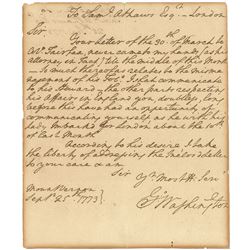 To Sam.l Athawes Esq.r — London
Sir
Your letter of the 30th of March to
Col.o Fairfax, never came to my hands (as his
attorney in Fact) till the middle of this Month
— so much thereof as relates to the
expences of his I shall communicate
to his Steward, the other part respecting
his Affairs in England you, doubtless, long
before this have had an opportunity of
communicating yourself, as he with his
Lady Imbarkd for London about the 10th
of last Month.
According to his desire I take
the liberty of addressing the Inclosed letter
to your care & am
Sir Y.r Most H. Ser.t
Mount Vernon
Sept.r 25th 1773
G.o Washington